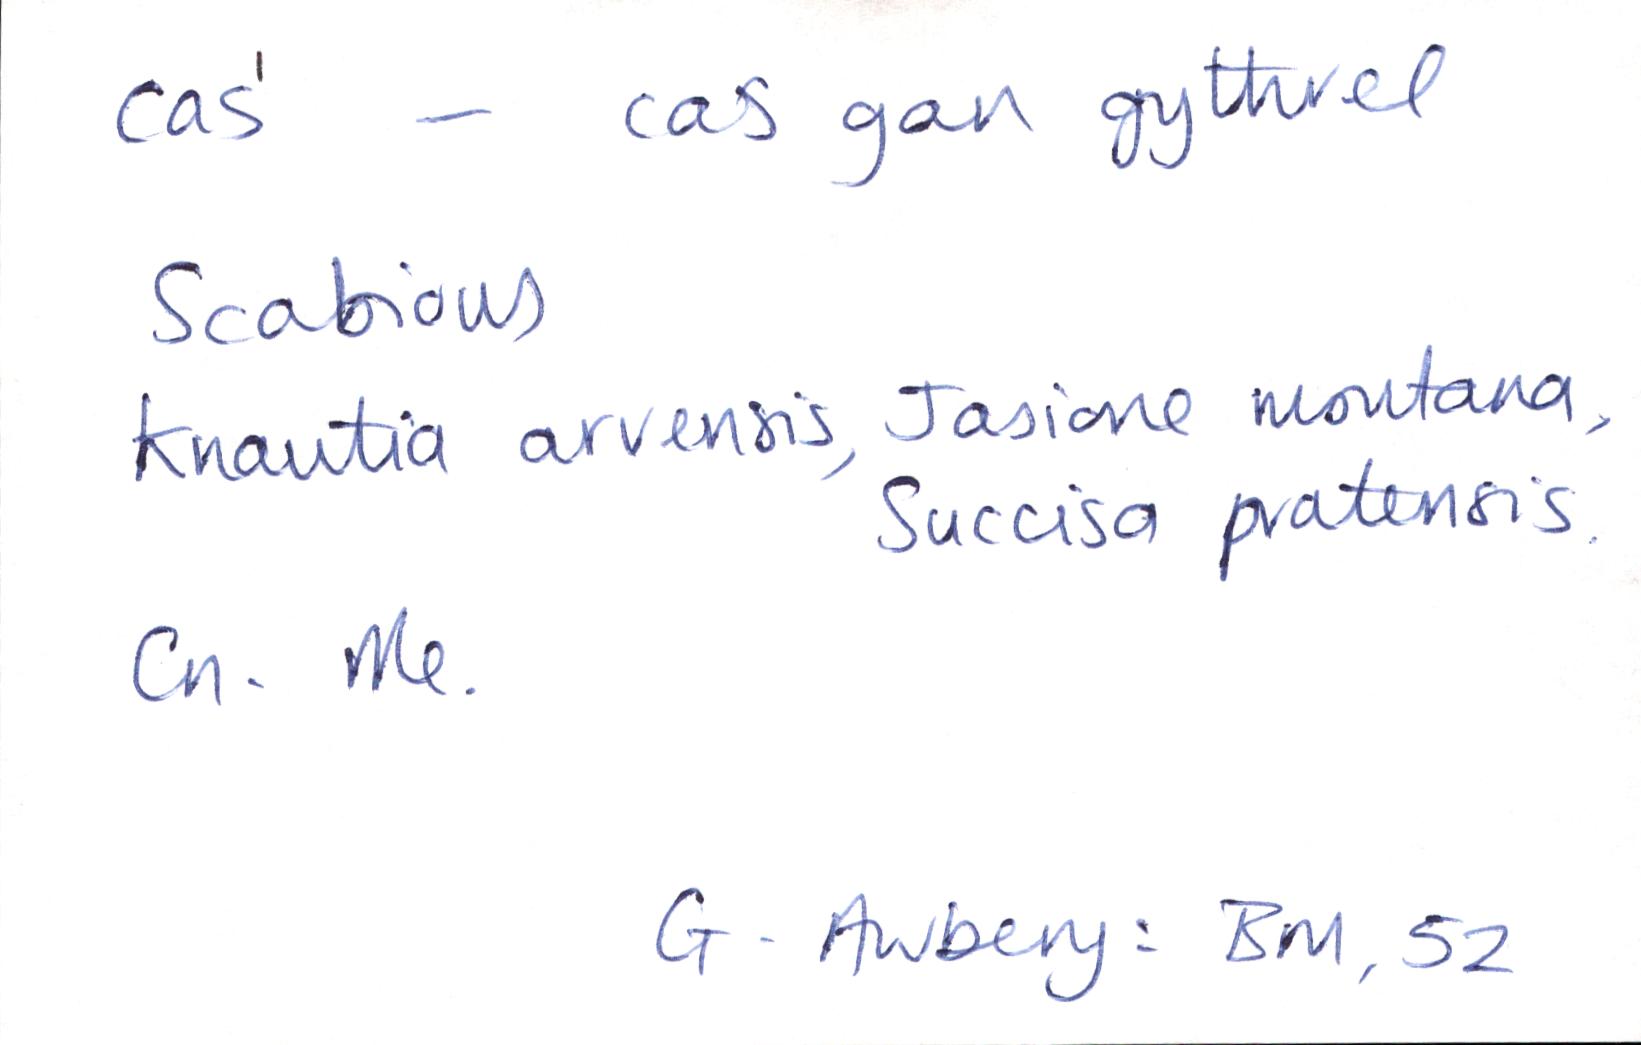 cas' — cas gan gythrel
Scabious
Knautia arvensis, Jasione montana,
Succisa pratensis.
Cn. Me.
G. Awbery: BM, 52